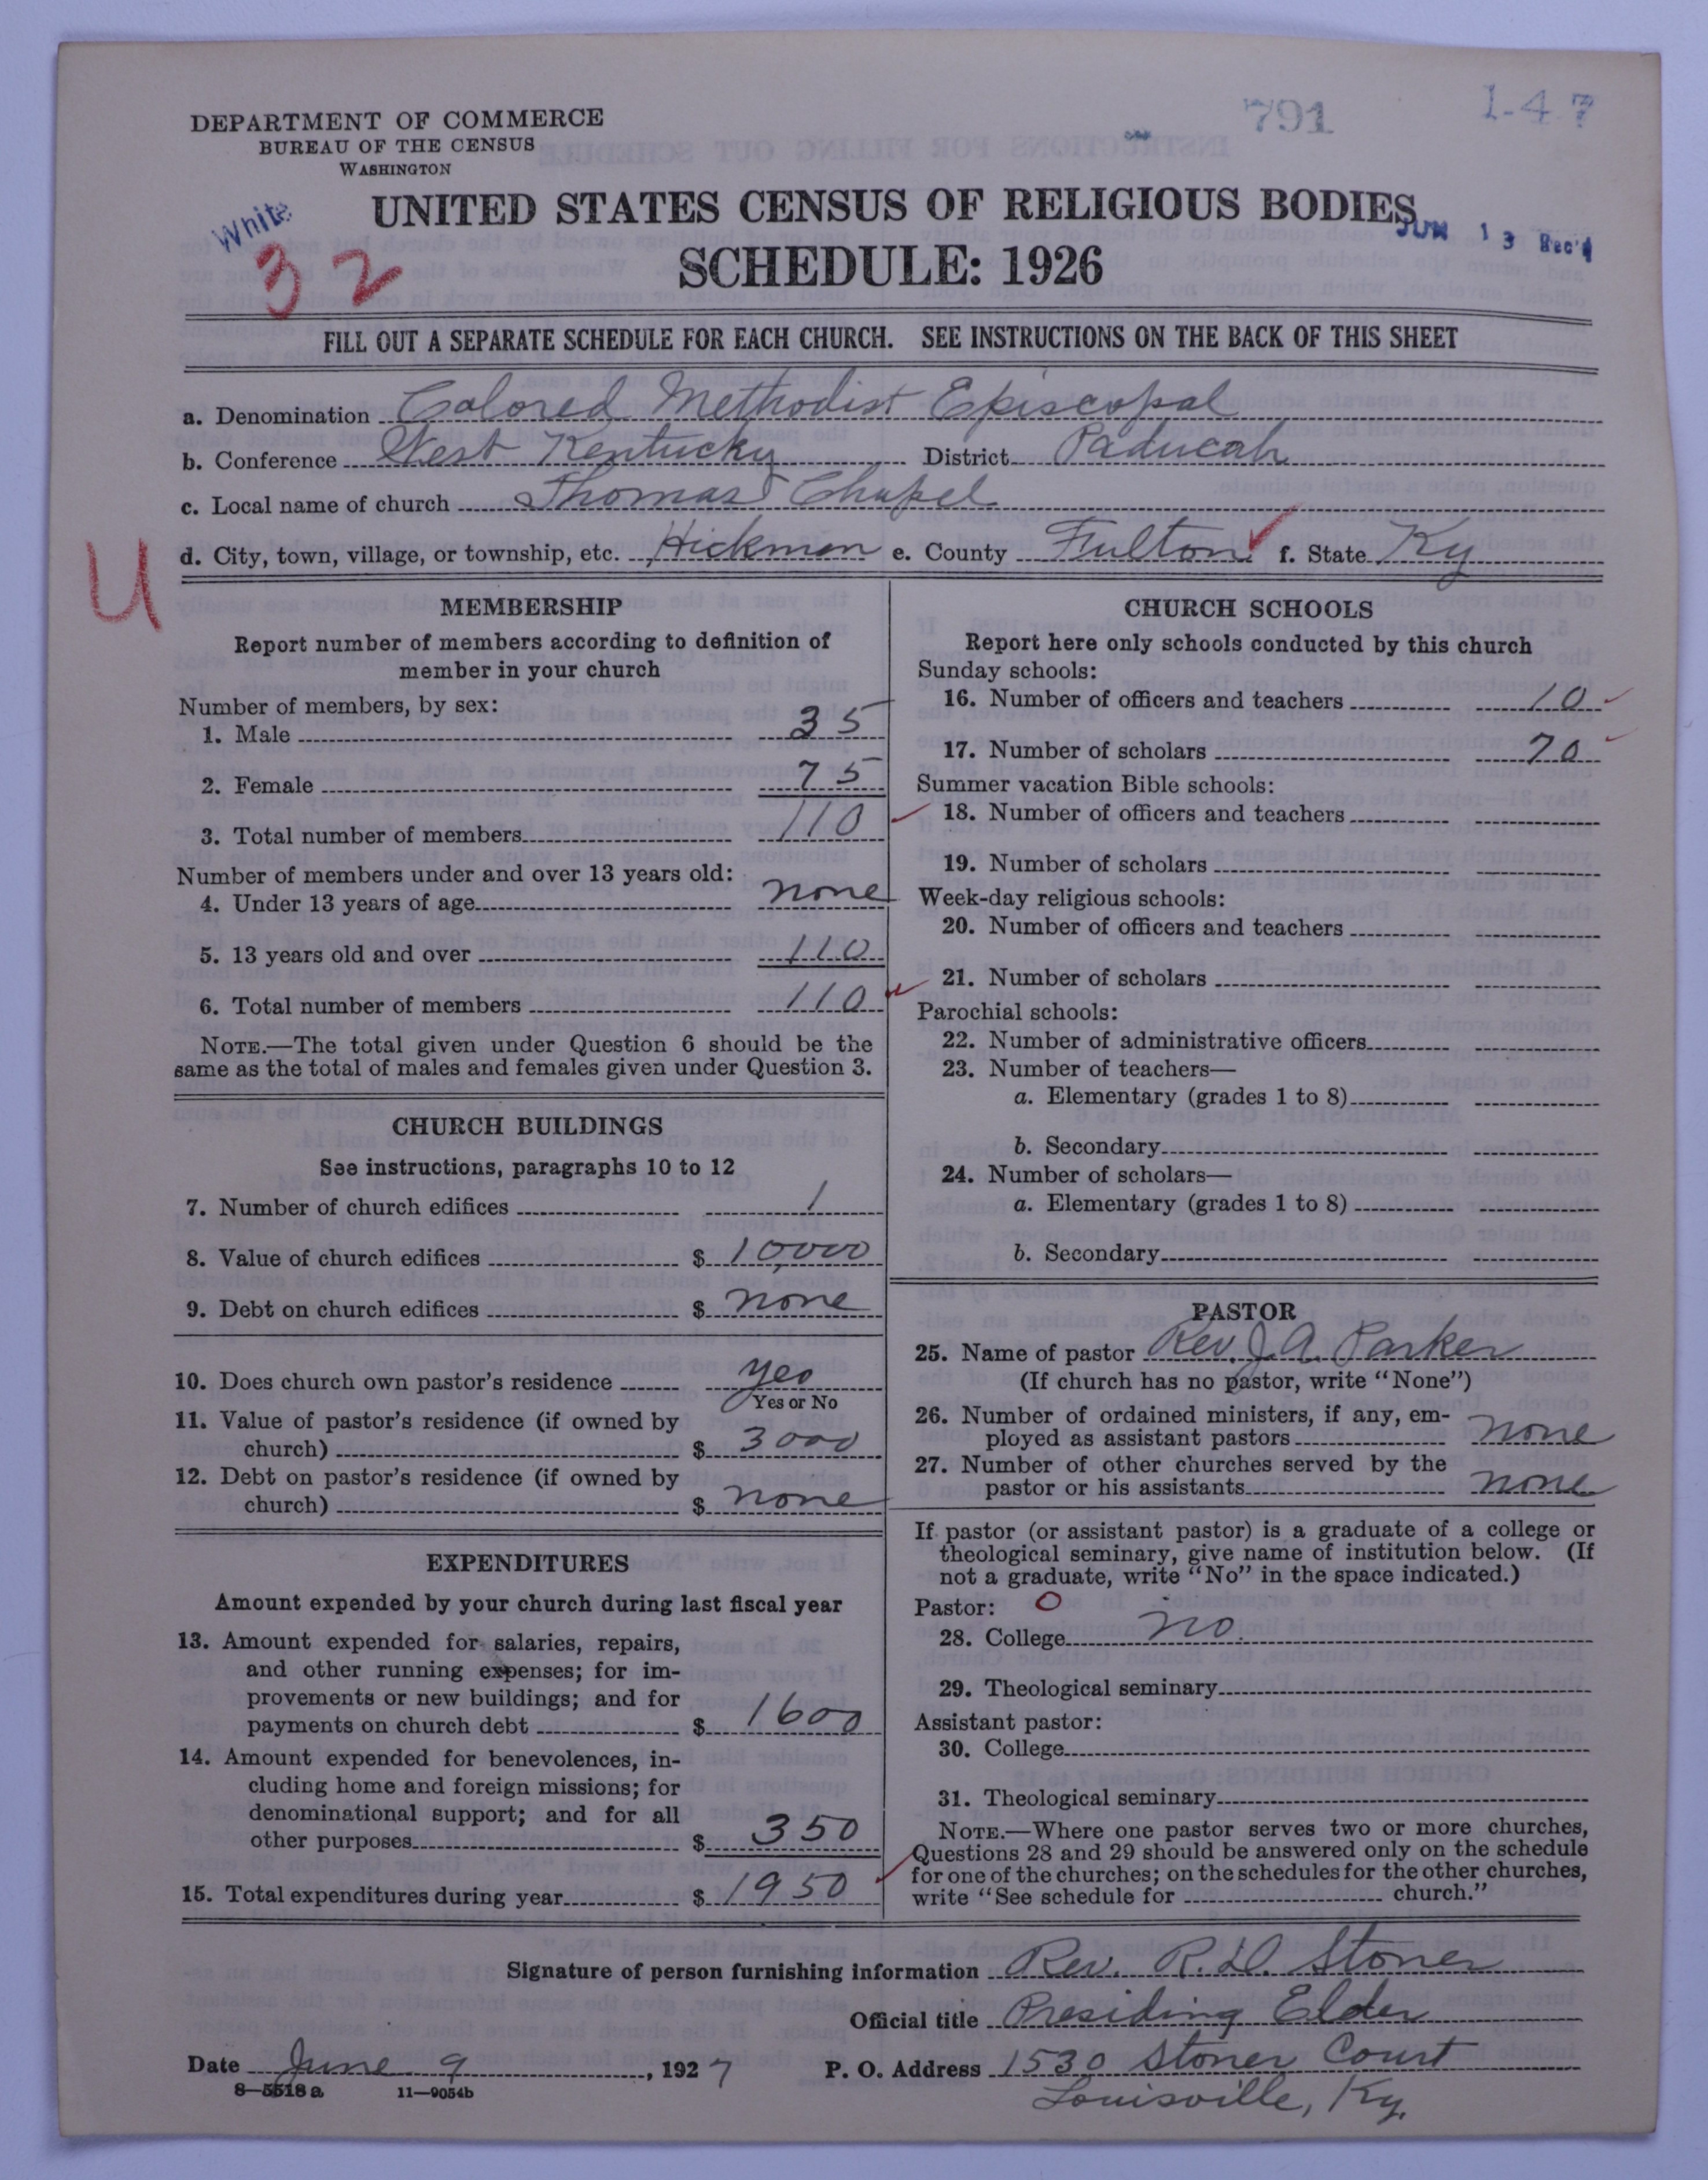 791
1-47
DEPARTMENT OF COMMERCE
BUREAU OF THE CENSUS
WASHINGTON
White
32
UNITED STATES CENSUS OF RELIGIOUS BODIES
JUN 13 Rec'd
SCHEDULE: 1926
FILL OUT A SEPARATE SCHEDULE FOR EACH CHURCH. SEE INSTRUCTIONS ON THE BACK OF THIS SHEET
a. Denomination Colored Methodist Episcopal
b. Conference West Kentucky District Paducah
c. Local name of church Thomas Chapel
d. City, town, village, or township, etc. Hickman e. County Fulton f. State Ky
U
MEMBERSHIP
Report number of members according to definition of
member in your church
Number of members, by sex:
1. Male 35
2. Female 75
3. Total number of members 110
Number of members under and over 13 years old:
4. Under 13 years of age none
5. 13 years old and over 110
6. Total number of members 110
NOTE.—The total given under Question 6 should be the
same as the total of males and females given under Question 3.
CHURCH BUILDINGS
See instructions, paragraphs 10 to 12
7. Number of church edifices 1
8. Value of church edifices $ 10,000
9. Debt on church edifices $ none
10. Does church own pastor's residence yes
Yes or No
11. Value of pastor's residence (if owned by
church) $ 3000
12. Debt on pastor's residence (if owned by
church) $ none
EXPENDITURES
Amount expended by your church during last fiscal year
13. Amount expended for salaries, repairs,
and other running expenses; for im-
provements or new buildings; and for
payments on church debt $ 1600
14. Amount expended for benevolences, in-
cluding home and foreign missions; for
denominational support; and for all
other purposes $ 350
15. Total expenditures during year $ 1950
CHURCH SCHOOLS
Report here only schools conducted by this church
Sunday schools:
16. Number of officers and teachers 10
17. Number of scholars 70
Summer vacation Bible schools:
18. Number of officers and teachers
19. Number of scholars
Week-day religious schools:
20. Number of officers and teachers
21. Number of scholars
Parochial schools:
22. Number of administrative officers
23. Number of teachers—
a. Elementary (grades 1 to 8)
b. Secondary
24. Number of scholars—
a. Elementary (grades 1 to 8)
b. Secondary
PASTOR
25. Name of pastor Rev. J. A. Parker
(If church has no pastor, write "None")
26. Number of ordained ministers, if any, em-
ployed as assistant pastors none
27. Number of other churches served by the
pastor or his assistants none
If pastor (or assistant pastor) is a graduate of a college or
theological seminary, give name of institution below. (If
not a graduate, write "No" in the space indicated.)
Pastor: O
28. College no.
29. Theological seminary
Assistant pastor:
30. College
31. Theological seminary
NOTE.—Where one pastor serves two or more churches,
Questions 28 and 29 should be answered only on the schedule
for one of the churches; on the schedules for the other churches,
write "See schedule for church."
Signature of person furnishing information Rev. R. D. Stoner
Official title Presiding Elder
Date June 9, 1927 P. O. Address 1530 Stoner Court
8—5518 a 11—9054b Louisville, Ky.